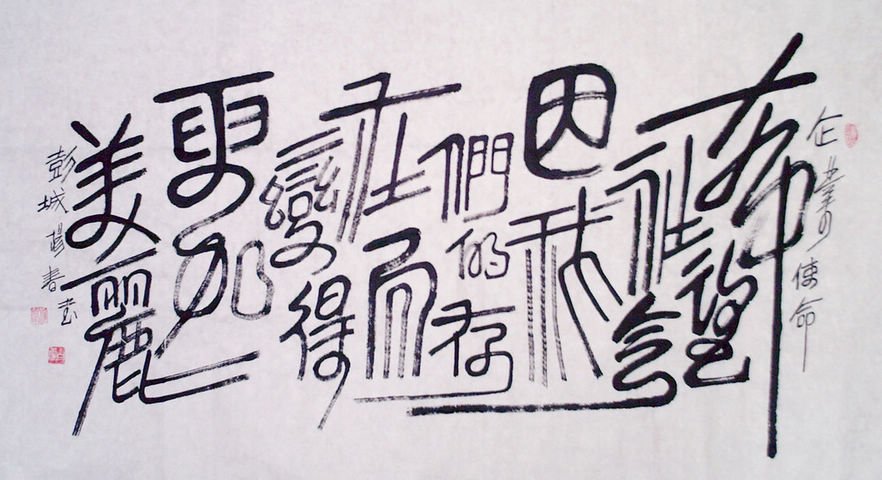 企業使命
希望
社會
因我
們的存
在而
變得
更加
美麗
彭城楊春書